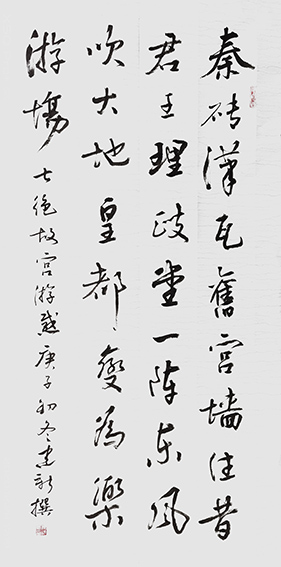 秦砖漢瓦舊宫墙往昔
君王理政堂一陣东風
吹大地皇都變為樂
游場
七绝故宫游感庚子初冬建新撰